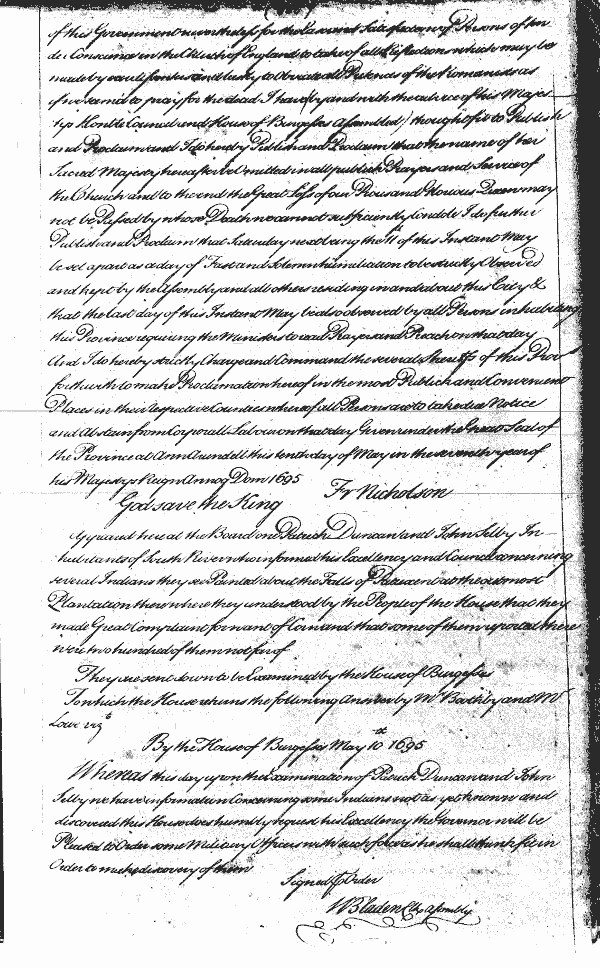 of this Government nevertheless for the Layant Satisfaction of Persons of ten
der Conscience in the Church of England to take of all Objections which may be
made by various and lucky to Obviate all Pretence of the Romanists as
if we seem'd to pray for the dead I have by and with the advice of his Majes
tys Honble Council and House of Burgesses Assembled) thought fit to Publish
and Proclaim and I do hereby Publish and Proclaim that the name of her
Sacred Majesty hereafter be Omitted in all publick Prayers and Service of
the Church and to the end the Great Loss of our Pious and Glorious Queen may
not be passed by whose Death we cannot sufficiently Condole I do further
Publish and Proclaim that Saturday next being the 11th of this Instant May
be set apart as a day of Fast and Solemn humiliation to be strictly Observed
and kept by the Assembly and all others residing in and about this City &
that the last day of this Instant May be also observed by all Persons inhabiting
this Province requiring the Ministers to read Prayers and Preach on that day
And I do hereby strictly Charge and Command the several Sheriffs of this Prov
forthwith to make Proclamation hereof in the most Publick and Convenient
Places in their respective Counties whereof all Persons are to take due Notice
and Abstain from Corporall Labour on that day Given under the Great Seal of
the Province at Ann Arundell this tenth day of May in the seventh year of
his Majestys Reign Annoq Dom 1695
God save the King Fr Nicholson
Appeared here at the Board one Patrick Duncan and John Selby In-
habitants of South River who informed his Excellency and Council concerning
several Indians they see Painted about the Falls of Patuxent at the outmost
Plantation there where they understood by the People of the House that they
made Great Complaint for want of Corn and that some of them reported there
were two hundred of them not far of
They are sent down to be Examined by the House of Burgesses
To which the House returns the following Answer by Mr Boothby and Mr
Lowe vizt
By the House of Burgesses May 10th 1695
Whereas this day upon the Examination of Patrick Duncan and John
Selby we have information Concerning some Indians not as yet known and
discovered this House does humbly request his Excellency the Governor will be
Pleased to Order some Military Officers with such force as he shall think fit in
Order to make discovery of them
Signed P Order
WBladen Clk Assembly